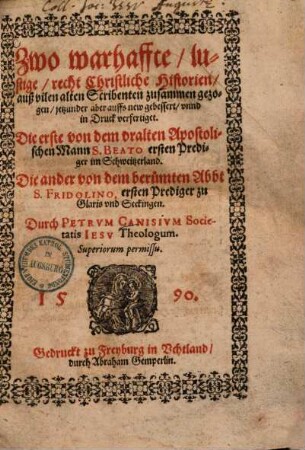 Coll. Soc: Jesu Augustæ.
Zwo warhaffte / lu-
stige / recht Christliche Historien /
auß vilen alten Scribenten zusammen gezo-
gen / jetzunder aber auffs new gebessert / vnnd
in Druck verfertiget.
Die erste von dem vralten Apostoli-
schen Mann S. BEATO ersten Predi-
ger im Schweitzerland.
Die ander von dem berümten Abbt
S. FRIDOLINO, ersten Prediger zu
Glaris vnd Seckingen.
Durch PETRVM CANISIVM Socie-
tatis IESV Theologum.
Superiorum permissu.
IN
AUGSBURG
15 90.
Gedruckt zu Freyburg in Vchtland /
durch Abraham Gemperlin.